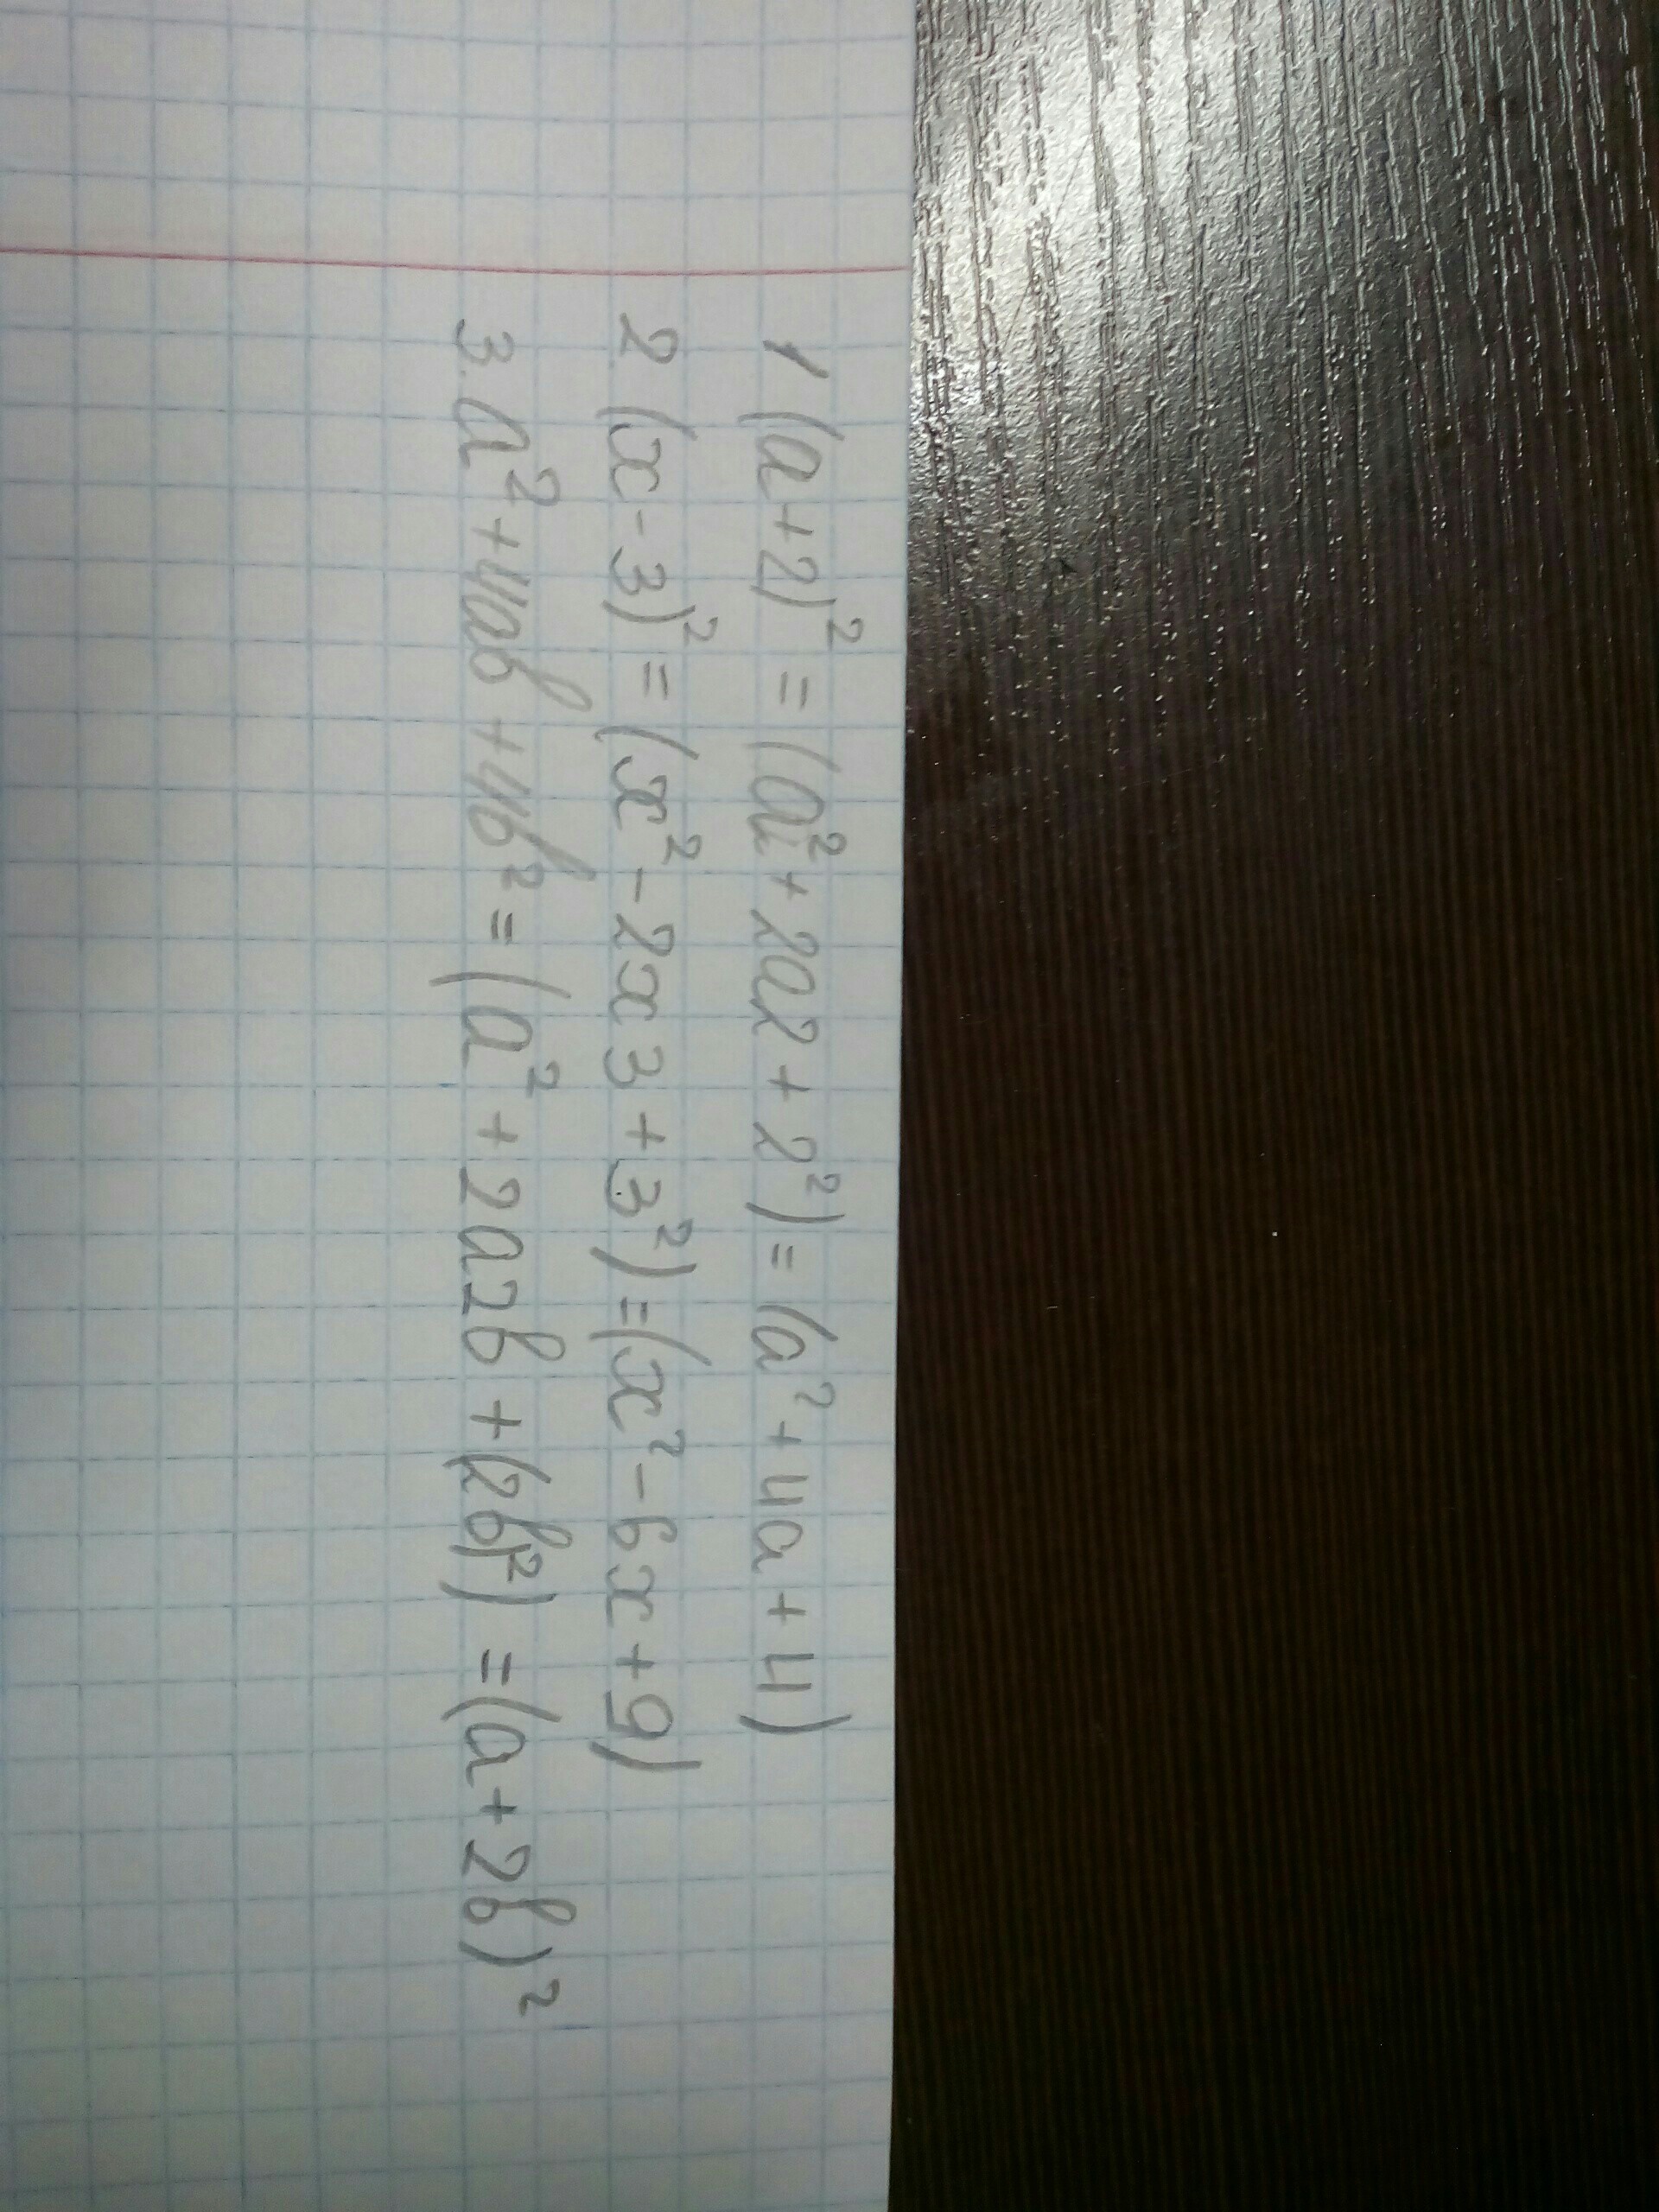 1 (a+2)² = (a²+2a2+2²) = (a²+4a+4)
2 (x-3)² = (x²-2x3+3²)=(x²-6x+9)
3. a²+4ab+4b² = (a²+2a2b+(2b)²) =(a+2b)²